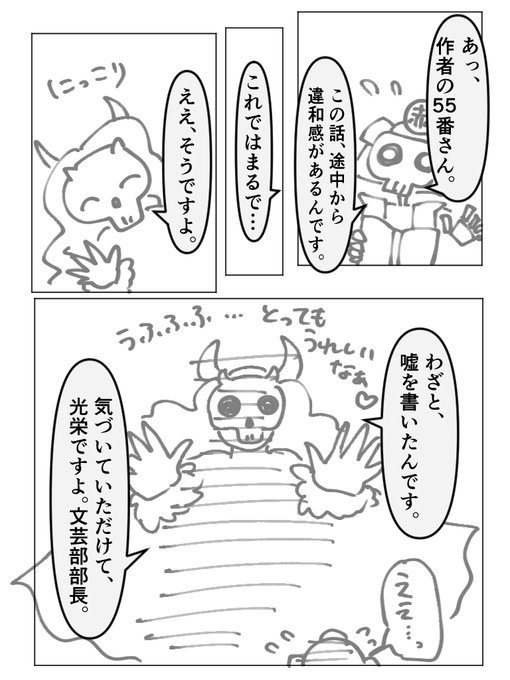 あっ、
作者の55番さん。
この話、途中から
違和感があるんです。
これではまるで…
(にっこり
ええ、そうですよ。
うふふふ… とっても
うれしい
なぁ♡
わざと、
嘘を書いたんです。
気づいていただけて、
光栄ですよ。文芸部部長。
ええ…っ